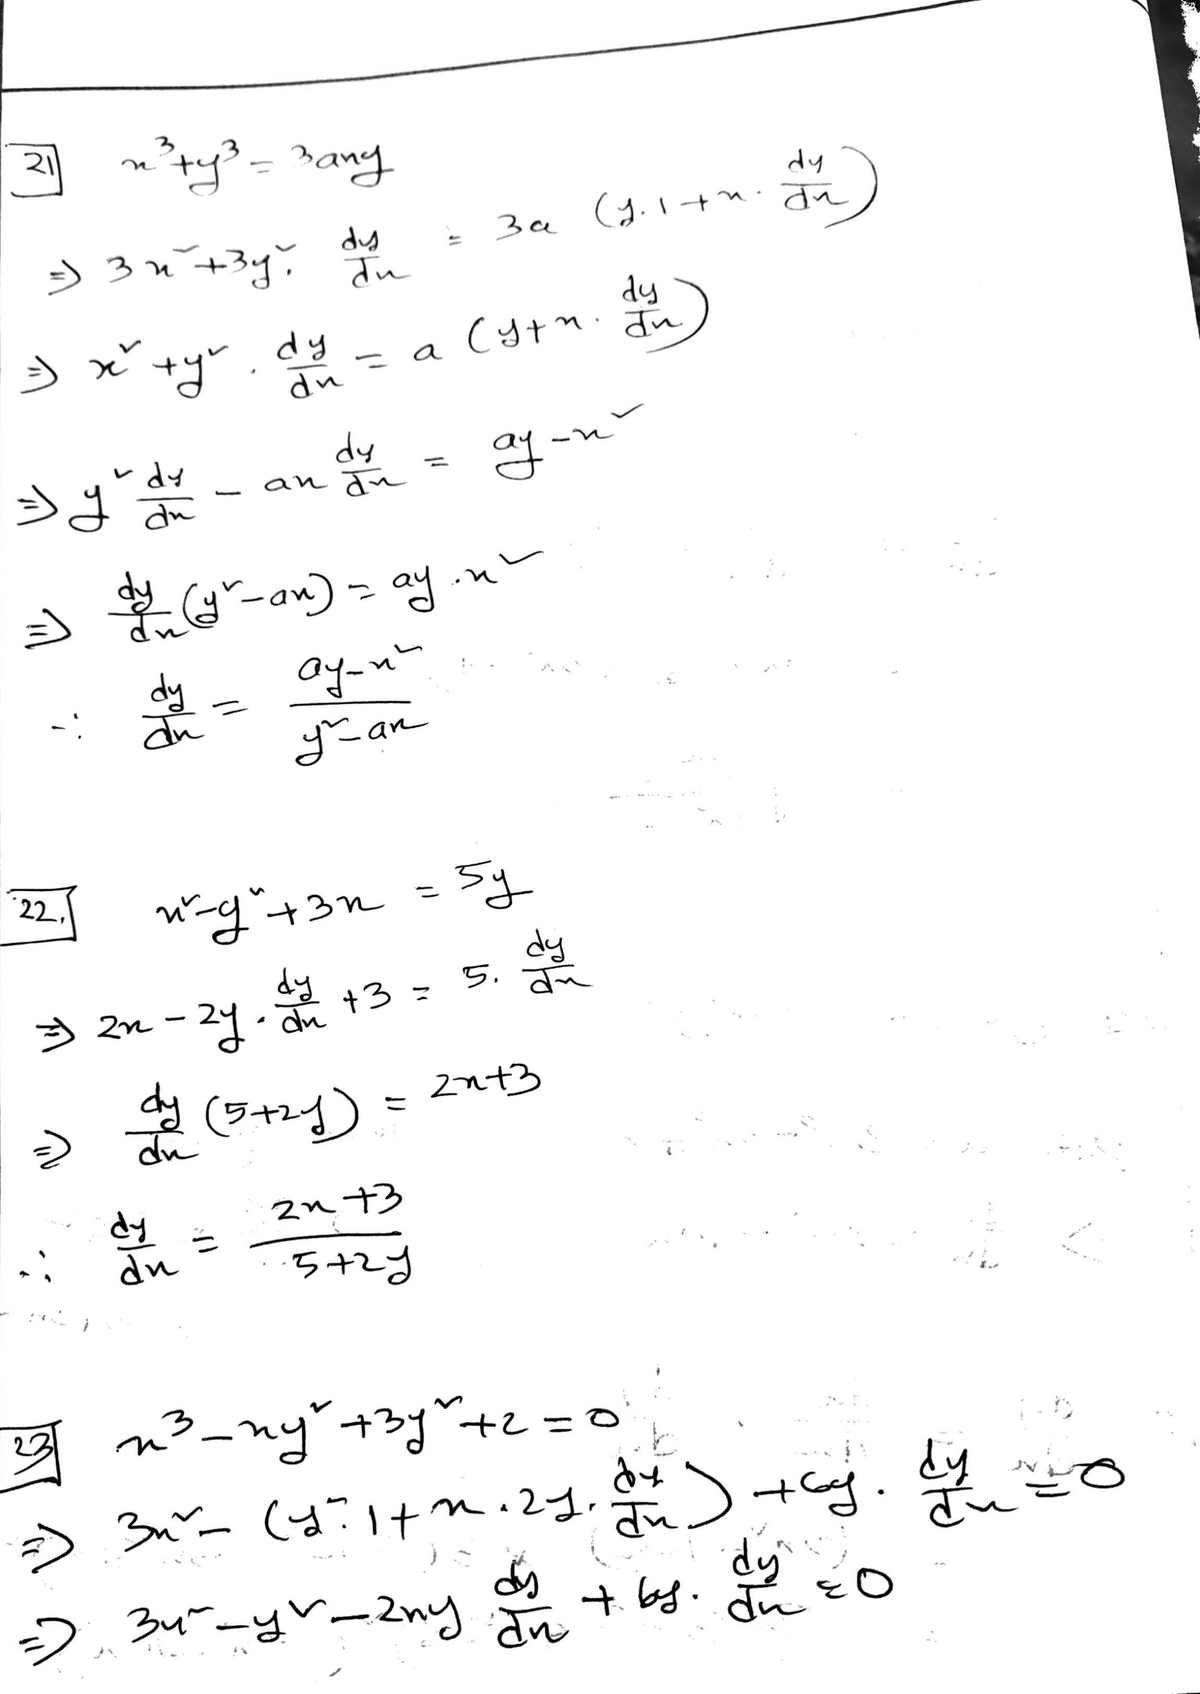 21 x³+y³ = 3axy
⇒ 3x²+3y². dy/dx = 3a (y.1+x. dy/dx)
⇒ x²+y². dy/dx = a (y+x. dy/dx)
⇒ y² dy/dx - ax dy/dx = ay-x²
⇒ dy/dx (y²-ax) = ay-x²
∴ dy/dx = (ay-x²)/(y²-ax)
22. x²-y²+3x = 5y
⇒ 2x - 2y. dy/dx +3 = 5. dy/dx
⇒ dy/dx (5+2y) = 2x+3
∴ dy/dx = (2x+3)/(5+2y)
23 x³-xy²+3y²+2=0
⇒ 3x²- (y².1+x.2y. dy/dx) +6y. dy/dx = 0
⇒ 3x²-y²-2xy dy/dx + 6y. dy/dx = 0